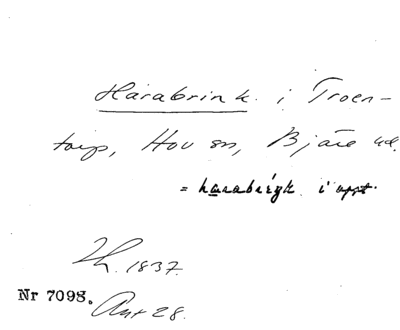 Harabrink. i Troen-
torp, Hov sn, Bjäre hd.
= harabrigk i uppt.
Th. 1837.
Nr 7098.
Ant 28.